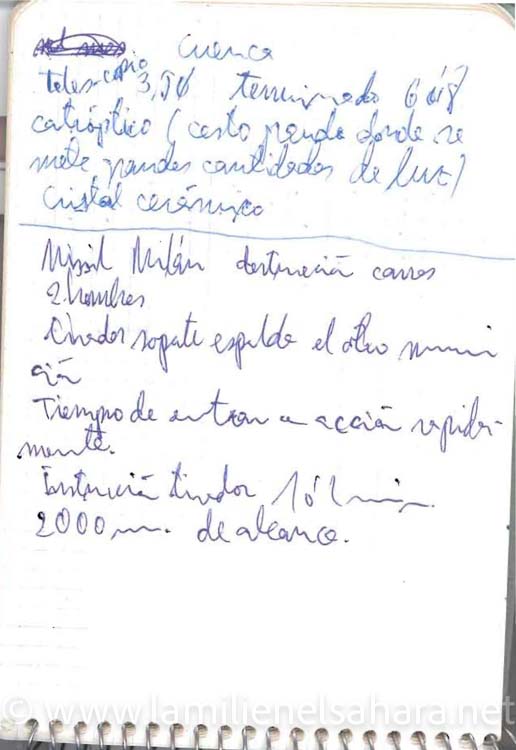 Cuenca
telescopio 3,50 terminado 6 ó 8
catróptico (cesto grande donde se
mete grandes cantidades de luz)
Cristal cerámico
Missil Milán destrucción carros
2 hombres
tirador soporte espalda el otro muni
ción
Tiempo de entrar en acción rapida-
mente.
Instrucción tirador 1 ó 2
2000 m. de alcance.
© www.lamilienelsahara.net